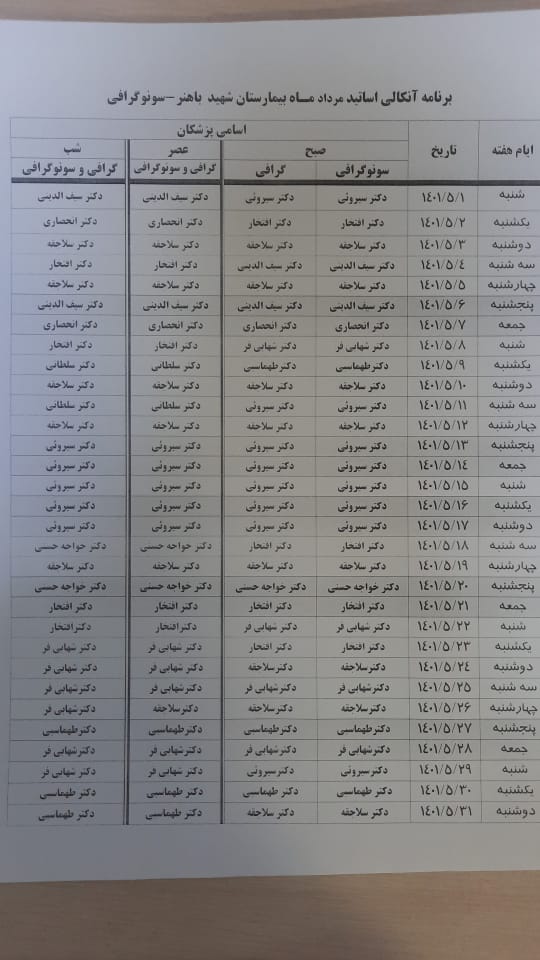 برنامه آنکالی اساتید مرداد مــاه بیمارستان شهید باهنر –سونوگرافی
ایام هفته تاریخ اسامی پزشکان
صبح عصر شب
سونوگرافی گرافی گرافی و سونوگرافی گرافی و سونوگرافی
شنبه ۱٤۰۱/۵/۱ دکتر سیروئی دکتر سیروئی دکتر سیف الدینی دکتر سیف الدینی
یکشنبه ۱٤۰۱/۵/۲ دکتر افتخار دکتر افتخار دکتر انحصاری دکتر انحصاری
دوشنبه ۱٤۰۱/۵/۳ دکتر سلاجقه دکتر سلاجقه دکتر سلاجقه دکتر سلاجقه
سه شنبه ۱٤۰۱/۵/٤ دکتر سیف الدینی دکتر سیف الدینی دکتر افتخار دکتر افتخار
چهارشنبه ۱٤۰۱/۵/۵ دکتر سلاجقه دکتر سلاجقه دکتر سلاجقه دکتر سلاجقه
پنجشنبه ۱٤۰۱/۵/۶ دکتر سیف الدینی دکتر سیف الدینی دکتر سیف الدینی دکتر سیف الدینی
جمعه ۱٤۰۱/۵/۷ دکتر انحصاری دکتر انحصاری دکتر انحصاری دکتر انحصاری
شنبه ۱٤۰۱/۵/۸ دکتر شهابی فر دکتر شهابی فر دکتر افتخار دکتر افتخار
یکشنبه ۱٤۰۱/۵/۹ دکترطهماسبی دکتر طهماسبی دکتر سلطانی دکتر سلطانی
دوشنبه ۱٤۰۱/۵/۱۰ دکتر سلاجقه دکتر سلاجقه دکتر سلاجقه دکتر سلاجقه
سه شنبه ۱٤۰۱/۵/۱۱ دکتر سیروئی دکتر سیروئی دکتر سلطانی دکتر سلطانی
چهارشنبه ۱٤۰۱/۵/۱۲ دکتر سلاجقه دکتر سلاجقه دکتر سلاجقه دکتر سلاجقه
پنجشنبه ۱٤۰۱/۵/۱۳ دکتر سیروئی دکتر سیروئی دکتر سیروئی دکتر سیروئی
جمعه ۱٤۰۱/۵/۱٤ دکتر سیروئی دکتر سیروئی دکتر سیروئی دکتر سیروئی
شنبه ۱٤۰۱/۵/۱۵ دکتر سیروئی دکتر سیروئی دکتر سیروئی دکتر سیروئی
یکشنبه ۱٤۰۱/۵/۱۶ دکتر سیروئی دکتر سیروئی دکتر سیروئی دکتر سیروئی
دوشنبه ۱٤۰۱/۵/۱۷ دکتر سیروئی دکتر سیروئی دکتر سیروئی دکتر سیروئی
سه شنبه ۱٤۰۱/۵/۱۸ دکتر افتخار دکتر افتخار دکتر خواجه حسنی دکتر خواجه حسنی
چهارشنبه ۱٤۰۱/۵/۱۹ دکتر سلاجقه دکتر سلاجقه دکتر سلاجقه دکتر سلاجقه
پنجشنبه ۱٤۰۱/۵/۲۰ دکتر خواجه حسنی دکتر خواجه حسنی دکتر خواجه حسنی دکتر خواجه حسنی
جمعه ۱٤۰۱/۵/۲۱ دکتر افتخار دکتر افتخار دکتر افتخار دکتر افتخار
شنبه ۱٤۰۱/۵/۲۲ دکتر شهابی فر دکتر شهابی فر دکترافتخار دکترافتخار
یکشنبه ۱٤۰۱/۵/۲۳ دکتر افتخار دکتر افتخار دکتر شهابی فر دکتر شهابی فر
دوشنبه ۱٤۰۱/۵/۲٤ دکترسلاجقه دکترسلاجقه دکتر شهابی فر دکتر شهابی فر
سه شنبه ۱٤۰۱/۵/۲۵ دکتر شهابی فر دکتر شهابی فر دکترشهابی فر دکترشهابی فر
چهارشنبه ۱٤۰۱/۵/۲۶ دکترسلاجقه دکترسلاجقه دکترسلاجقه دکتر شهابی فر
پنجشنبه ۱٤۰۱/۵/۲۷ دکترطهماسبی دکترطهماسبی دکترطهماسبی دکتر طهماسبی
جمعه ۱٤۰۱/۵/۲۸ دکتر شهابی فر دکتر شهابی فر دکتر شهابی فر دکترشهابی فر
شنبه ۱٤۰۱/۵/۲۹ دکتر سیروئی دکترسیروئی دکتر شهابی فر دکتر شهابی فر
یکشنبه ۱٤۰۱/۵/۳۰ دکتر طهماسبی دکتر طهماسبی دکتر طهماسبی دکتر طهماسبی
دوشنبه ۱٤۰۱/۵/۳۱ دکتر سلاجقه دکتر سلاجقه دکتر طهماسبی دکتر طهماسبی